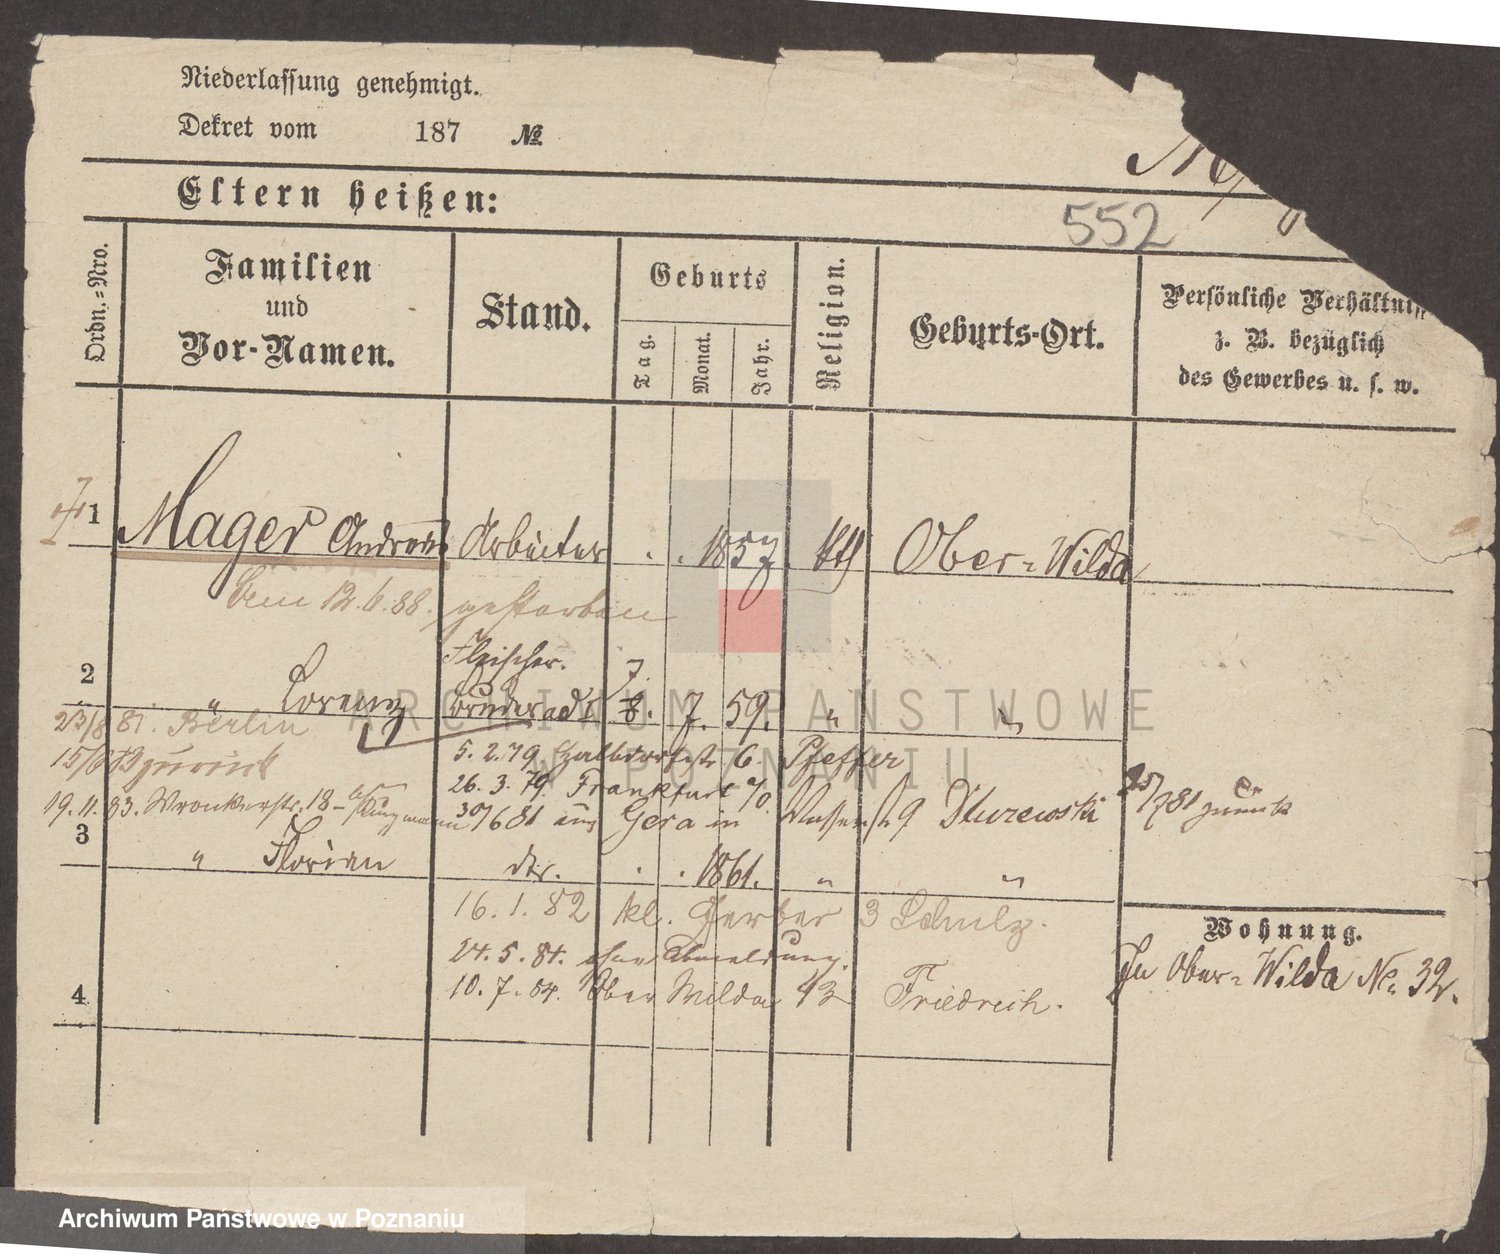 Niederlassung genehmigt.
Dekret vom 187 №.
Eltern heißen:
552
Ordn.=Nro.
Familien
und
Vor-Namen.
Stand.
Geburts
Tag.
Monat.
Jahr.
Religion.
Geburts-Ort.
Persönliche Verhältnisse
z. B. bezüglich
des Gewerbes u. s. w.
1 Mager Andreas Arbeiter . . 1857 kth Ober-Wilda
Am 12.6.88. gestorben
Fleischer. 7.
2 " Lorenz 8. 7. 59. " "
23/8 81. Berlin
5. 2. 79 Halbdorfstr 6 Pfeffer
15/8 zurück
26. 3. 79. Frankfurt a/O.
19. 11. 83. Wronkerstr. 18 30/6 81 aus Gera in Wasserstr 9 Dluzewski 25/781 zurück
3 " Florian dtr. . . 1861. " "
16. 1. 82 kl. Gerber 3 Schulz.
Wohnung.
24. 5. 84. ohne Abmeldung.
In Ober-Wilda No. 32.
4 10. 7. 84. Ober Wilda 43 Friedrich.
ARCHIWUM PAŃSTWOWE
W POZNANIU
Archiwum Państwowe w Poznaniu